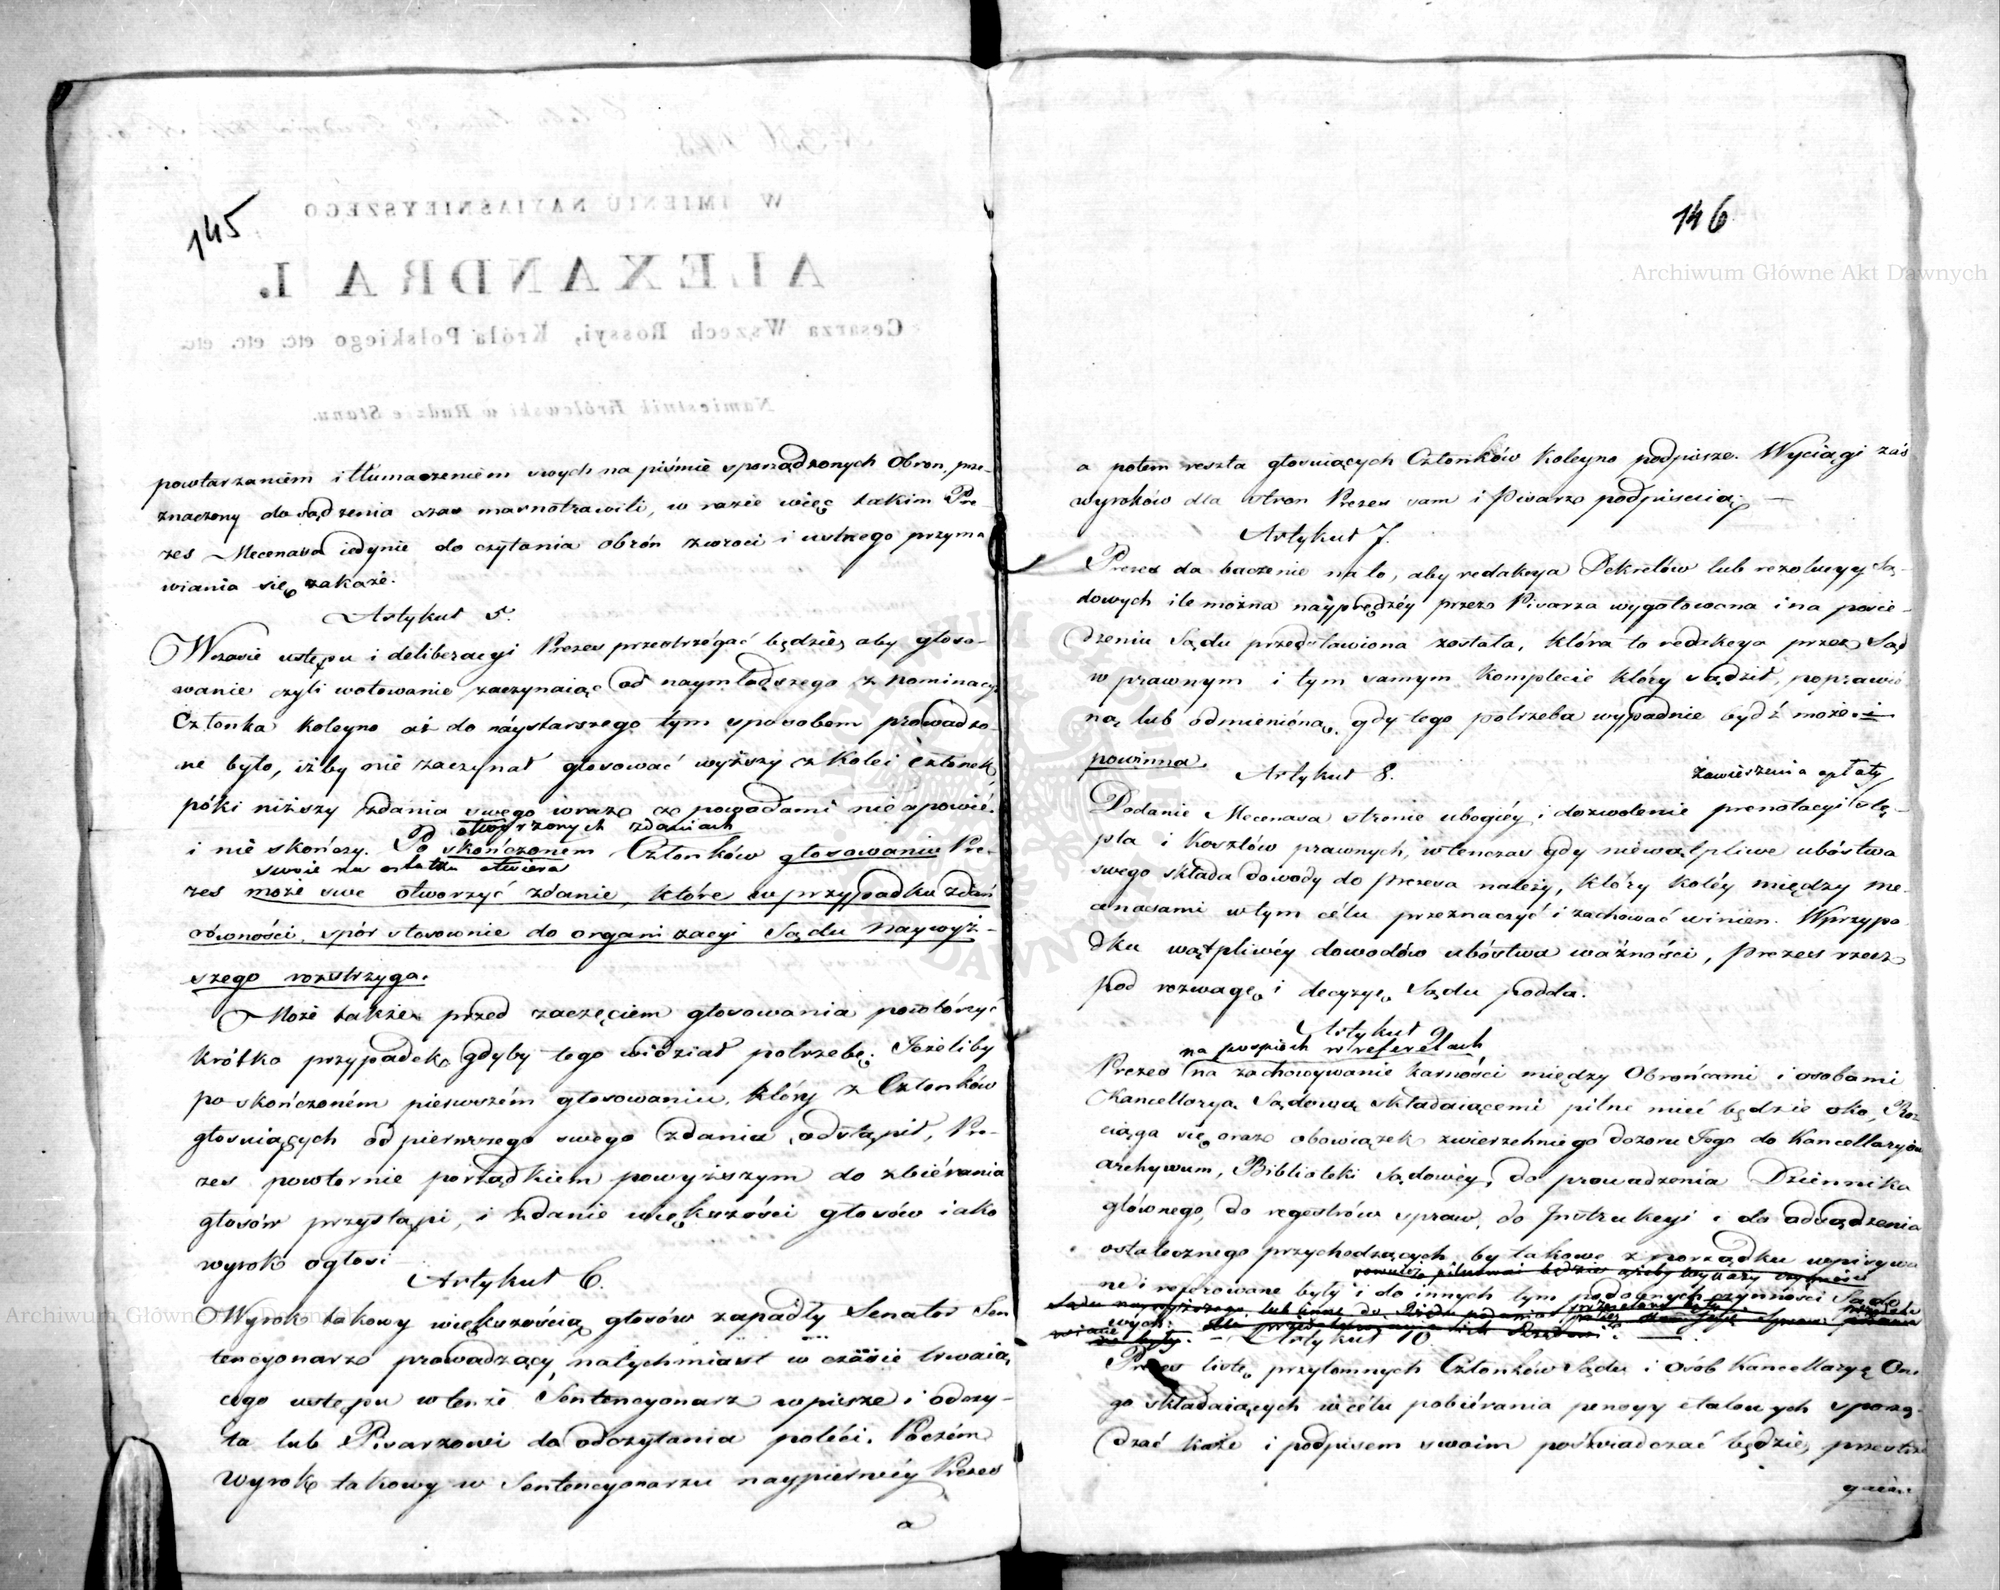 145
powtarzaniem i tłumaczeniem swych na piśmie sporządzonych Obron, prze-
znaczony do sądzenia czas marnotrawili, w razie więc takim Pre-
zes Mecenasa iedynie do czytania obrón zwroci i ustnego przyma
wiania się zakaże.
Artykuł 5.
Wczasie ustępu i deliberacyi Prezes przestrzégać będzie, aby głoso-
wanie czyli wotowanie, zaczynaiąc od naymłodszego z nominacyi
Członka koleyno aż do náystarszego tym sposobem prowadzo-
ne było, iżby nie zaczynał głosować wyższy z kolei członek,
póki niższy zdania swego wraz z powodami nie opowié,
otworzonych zdaniach
i nie skończy. Po skończonem Członków głosowaniu Pre-
swoie na ostatku otwiera
zes może swe otworzyć zdanie, które w przypadku zdań
równości, spór stosownie do organizacyi Sądu Naywyż-
szego rozstrzyga.
Może także przed zaczęciem głosowania powtórzyć
krótko przypadek, gdyby tego widział potrzebę. Jeżeliby
po skończoném pierwszém głosowaniu, który z Członków
głosuiących od pierwszego swego zdania odstąpił, Pre-
zes powtornie porządkiem powyższym do zbiérania
głosów przystąpi, i zdanie większości głosów iako
wyrok ogłosi
Artykuł 6.
Wyrok takowy większością głosów zapadły Senator Sen
tencyonarz prowadzący, natychmiast w czasie trwaią,
cego ustępu w tenże Sentencyonarz wpisze i odczy-
ta lub Pisarzowi do odczytania poleci. Poczém
Wyrok takowy w Sentencyonarzu naypierwéy Prezes
a
146
a potem reszta głosuiących Członków koleyno podpisze. Wyciągi zaś
wyroków dla stron Prezes sam i Pisarz podpisuią. —
Artykuł 7.
Prezes da baczenie na to, aby redakcya Dekretów lub rezolucyy Są-
dowych ile można nayprędzéy przez Pisarza wygotowana i na posie-
dzeniu Sądu przedstawiona została, która to redakcya przez Sąd
w prawnym i tym samym Komplecie który sądził, poprawio
ną lub odmienióną, gdy tego potrzeba wypadnie bydź może. i
powinna.
Artykuł 8.
zawieszenia opłaty
Dodanie Mecenasa stronie ubogiéy, i dozwolenie prenotacyi stę-
pla i kosztów prawnych, wtenczas gdy niewątpliwe ubóstwa
swego składa dowody do Prezesa należy, który koléy między Me-
cenasami wtym célu przeznaczyć i zachować winien. Wprzypa
dku wątpliwéy dowodów ubóstwa ważności, Prezes rzecz
pod rozwagę i decyzyę Sądu podda.
Artykuł 9.
na pospiech w referetach
Prezes na zachowywanie karności między Obrońcami i osobami
Kancellaryą Sądową składaiącemi pilne mieć będzie oko, Roz-
ciąga się oraz obowiązek zwierzchniego dozoru Jego do Kancellaryów
archywum, Biblioteki Sądowéy, do prowadzenia Dziennika
głównego, do regestrów spraw, do Instrukcyi i do odsądzenia
ostatecznego przychodzących, by takowe z porządku wpisywa
ne i referowane były i do innych tym podobnych czynności Sądo
wych.
Artykuł 10
Prezes listę przytomnych Członków Sądu i osob Kancellaryę One
go składaiących w celu pobiérania pensyy etatowych sporzą-
dzać każe i podpisem swoim poświadczać będzie, przestrze
gaiąc
W IMIENIU NAYIAŚNIEYSZEGO
ALEXANDRA I.
Cesarza Wszech Rossyi, Króla Polskiego etc. etc. etc.
Namiestnik Królewski w Radzie Stanu.
Archiwum Główne Akt Dawnych